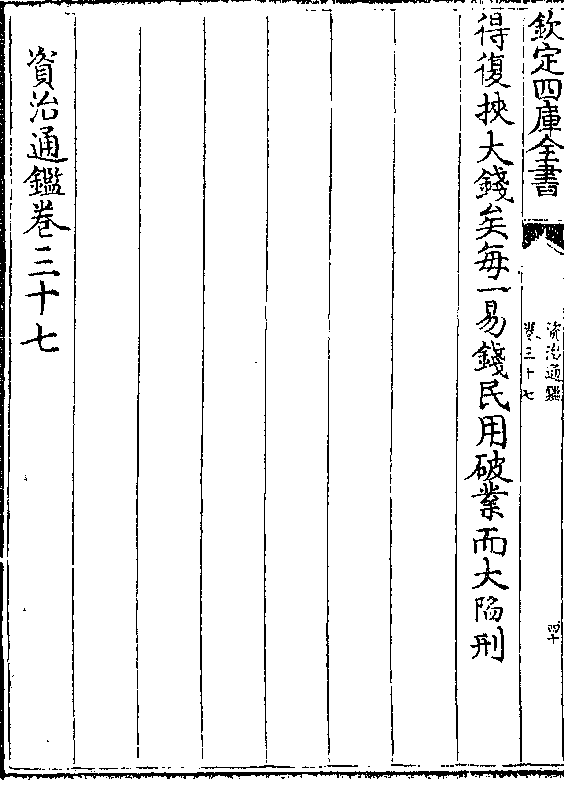 欽定四庫全書
資治通鑑
卷三十七
四十
得復挾大錢矣每一易錢民用破業而大陷刑
資治通鑑卷三十七